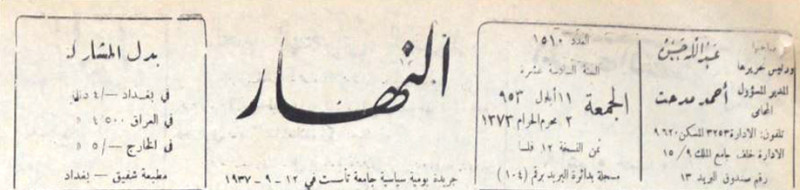 صاحبها
ورئيس تحريرها
عبد الله حسين
المدير المسؤول
أحمد مدحت
المحامي
تلفون: الادارة ٣٢٥٣ المسكن ٩٦٢٠
الادارة خلف جامع الملك ١٥/٩
رقم صندوق البريد ١٣
العدد ١٥١٠
السنة السادسة عشرة
الجمعة
١١ أيلول ٩٥٣
٢ محرم الحرام ١٣٧٣
ثمن النسخة ١٢ فلسا
مسجلة بدائرة البريد برقم (١٠٤)
النهار
جريدة يومية سياسية جامعة تأسست في ١٢-٩-١٩٣٧
بدل المشاركة
في بغداد -/٤ دنانير
في العراق ٤٥٠٠ »
في الخارج -/٥ »
مطبعة شفيق - بغداد